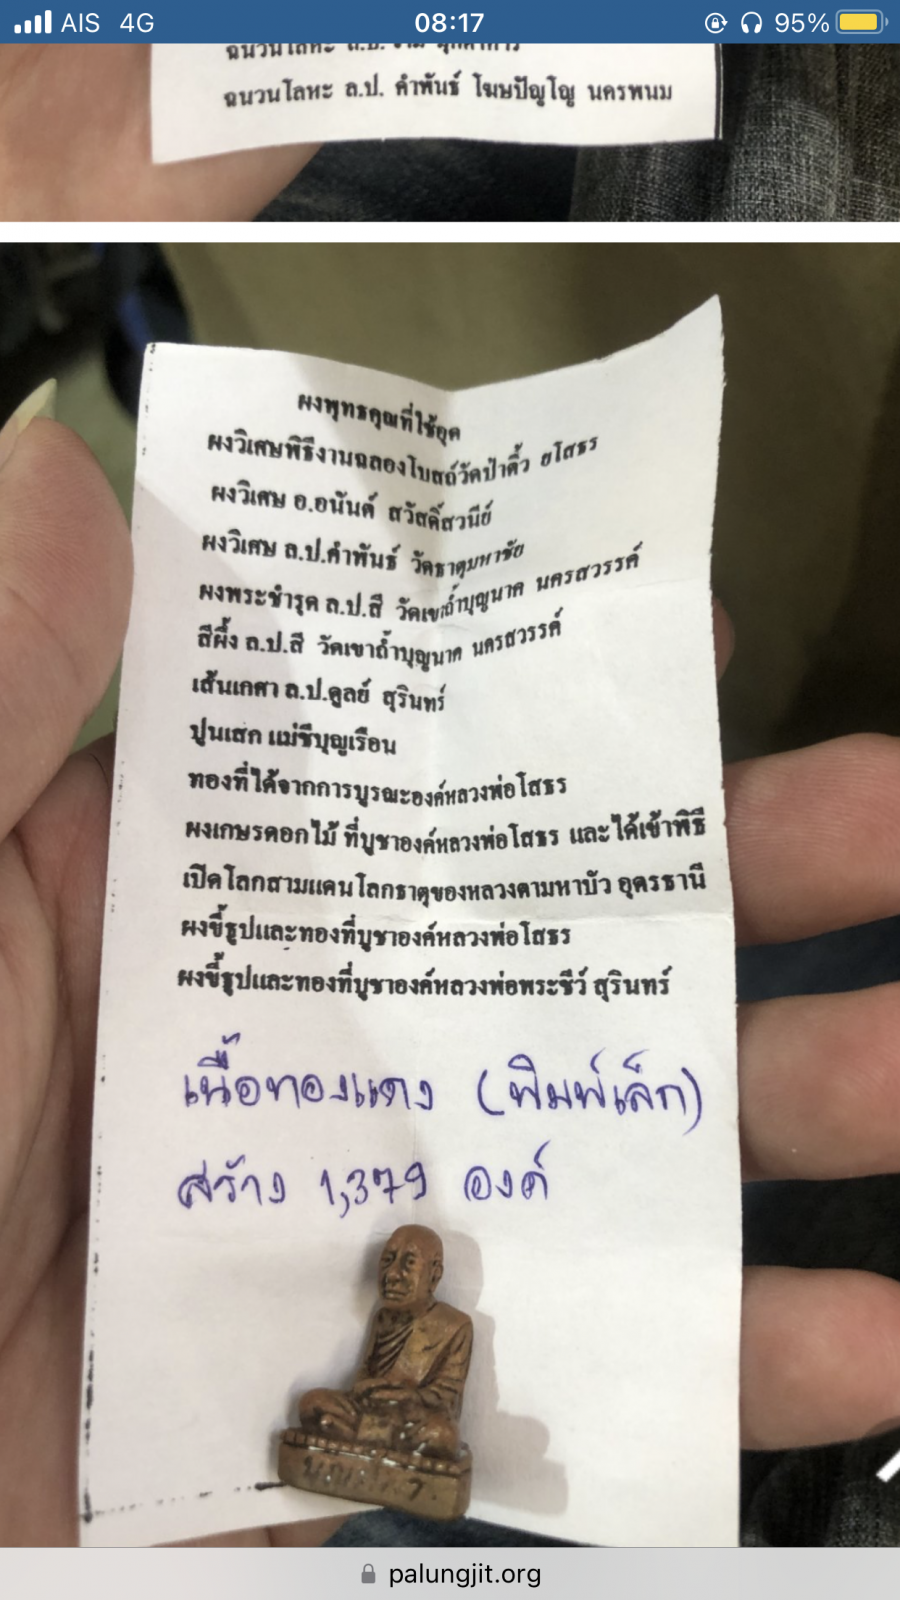 AIS 4G 08:17 95%
ฉนวนโลหะ ล.ป.
ฉนวนโลหะ ล.ป. คำพันธ์ โฆษปัญโญ นครพนม
ผงพุทธคุณที่ใช้อุด
ผงวิเศษพิธีงานฉลองโบสถ์วัดป่าติ้ว ยโสธร
ผงวิเศษ อ.อนันต์ สวัสดิ์สวนีย์
ผงวิเศษ ล.ป.คำพันธ์ วัดธาตุมหาชัย
ผงพระชำรุด ล.ป.สี วัดเขาถ้ำบุญนาค นครสวรรค์
สีผึ้ง ล.ป.สี วัดเขาถ้ำบุญนาค นครสวรรค์
เส้นเกศา ล.ป.ดูลย์ สุรินทร์
ปูนเสก แม่ชีบุญเรือน
ทองที่ได้จากการบูรณะองค์หลวงพ่อโสธร
ผงเกษรดอกไม้ ที่บูชาองค์หลวงพ่อโสธร และได้เข้าพิธี
เปิดโลกสามแดนโลกธาตุของหลวงตามหาบัว อุดรธานี
ผงขี้ธูปและทองที่บูชาองค์หลวงพ่อโสธร
ผงขี้ธูปและทองที่บูชาองค์หลวงพ่อพระชีว์ สุรินทร์
เนื้อทองแดง (พิมพ์เล็ก)
สร้าง 1,379 องค์
palungjit.org